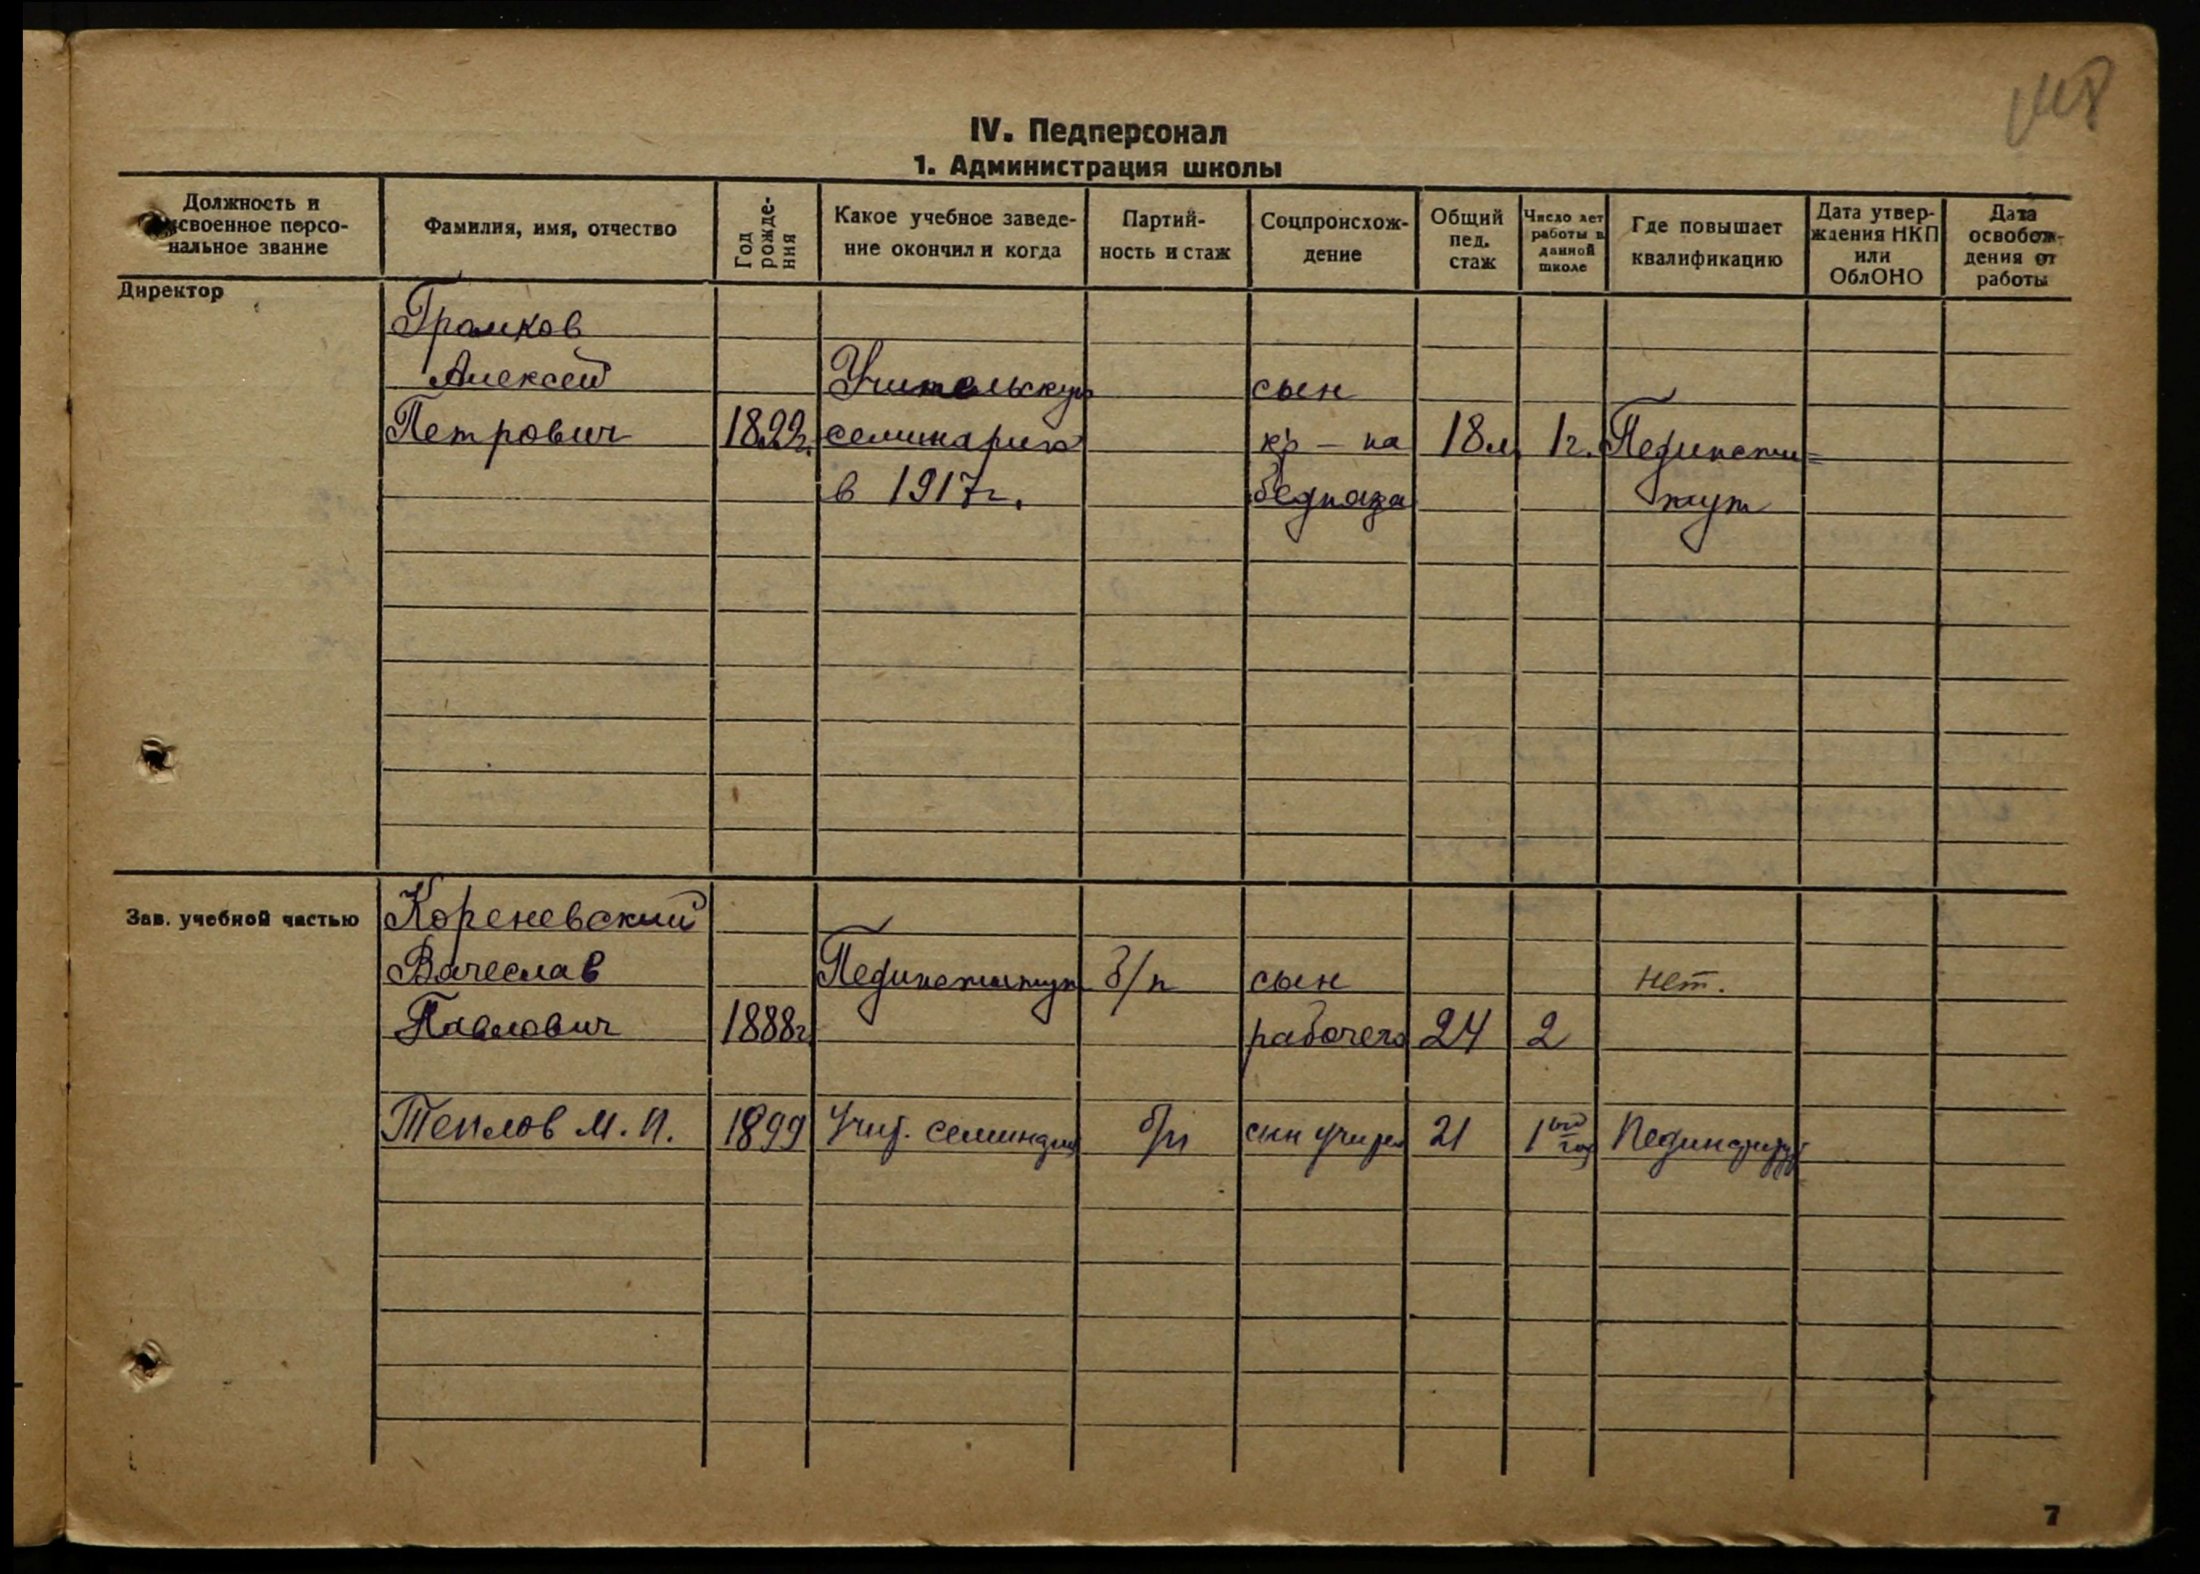 IV. Педперсонал
1. Администрация школы
Должность и
исвоенное персо-
нальное звание
Фамилия, имя, отчество
Год
рожде-
ния
Какое учебное заведе-
ние окончил и когда
Партий-
ность и стаж
Соцпроисхож-
дение
Общий
пед.
стаж
Число лет
работы в
данной
школе
Где повышает
квалификацию
Дата утвер-
ждения НКП
или
ОблОНО
Дата
освобож-
дения от
работы
Директор
Громков
Алексей Учительскую сын
Петрович семинарию кр-на 18 л. 1 г. Пединсти=
в 1917 г. бедняка тут
Зав. учебной частью Кореневский
Вячеслав Пединститут б/п сын нет.
Павлович 1888 г. рабочего 24 2
Теплов М. П. 1899 Учит. семинария б/п сын учителя 21 1ый год Пединститут
7